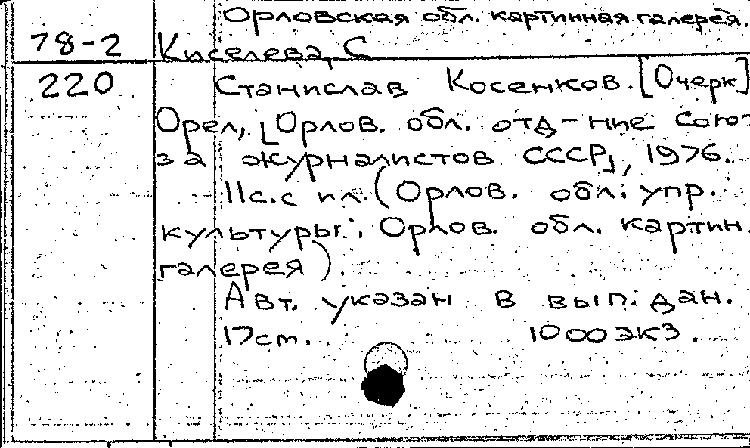 Орловская обл. картинная галерея.
78-2 Киселева, С
220 Станислав Косенков. [Очерк]
Орел, [Орлов. обл. отд-ние Сою-
за журналистов СССР], 1976.
11с. с ил. (Орлов. обл. упр.
культуры. Орлов. обл. картин.
галерея).
Авт. указан в вып. дан.
17см. 1000 экз.